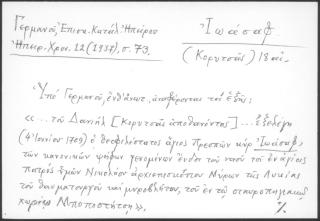 Γερμανοῦ, Ἐπισκ. Κατάλ. Ἠπείρου
Ἠπειρ. Χρον. 12 (1937), σ. 73.
Ἰωάσαφ
(Κορυτσᾶς) 18 αἰ.
Ὑπὸ Γερμανοῦ, ἐνθ' ἀνωτ., ἀναφέρονται τὰ ἑξῆς:
«... τοῦ Δανιὴλ [Κορυτσᾶς ἀποθανόντος] ... ἐξελέγη
(4 Ἰουνίου 1709) ὁ θεοφιλέστατος ἅγιος Πρεσπῶν κὺρ Ἰωάσαφ,
τῶν κανονικῶν ψήφων γενομένων ἔνδον τοῦ ναοῦ τοῦ ἐν ἁγίοις
πατρὸς ἡμῶν Νικολάου ἀρχιεπισκόπου Μύρων τῆς Λυκίας
τοῦ θαυματουργοῦ καὶ μυροβλύτου, τοῦ ἐν τῷ σταυροπηγιακῷ
χωρίῳ Μποποστήτσῃ».
%